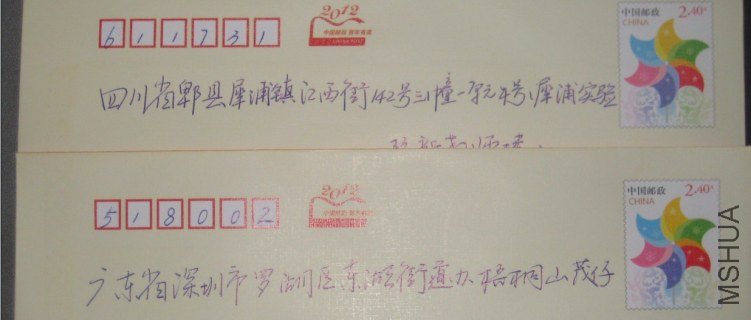 611731
2012
中国邮政 贺年有奖
中国邮政 2.40元
CHINA
四川省郫县犀浦镇江西街142号三幢一单元4号犀浦实验
518002
2012
中国邮政 贺年有奖
中国邮政 2.40元
CHINA
广东省深圳市罗湖区东湖街道办梧桐山茂仔
MSHUA